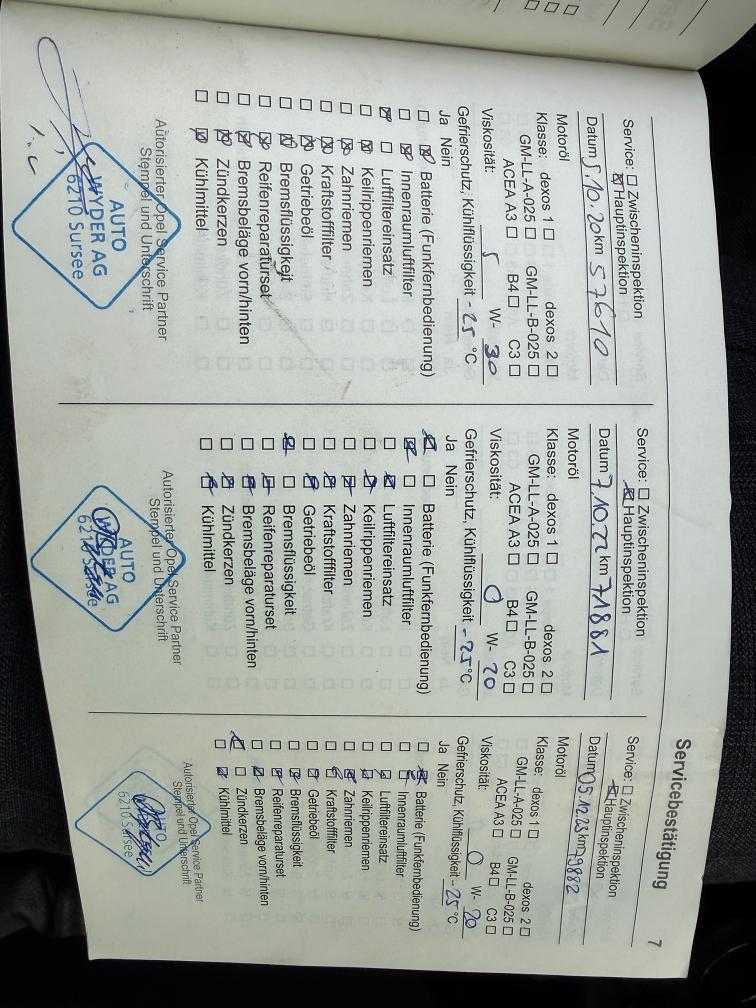 Servicebestätigung
7
Service: ☐ Zwischeninspektion
☒ Hauptinspektion
Datum 5.10.20 km 57610
Motoröl
Klasse: dexos 1 ☐ dexos 2 ☐
GM-LL-A-025 ☐ GM-LL-B-025 ☐
ACEA A3 ☐ B4 ☐ C3 ☐
Viskosität: 5 W- 30
Gefrierschutz, Kühlflüssigkeit -25 °C
Ja Nein
☐ ☒ Batterie (Funkfernbedienung)
☐ ☒ Innenraumluftfilter
☒ ☐ Luftfiltereinsatz
☐ ☒ Keilrippenriemen
☐ ☒ Zahnriemen
☐ ☒ Kraftstofffilter
☐ ☒ Getriebeöl
☐ ☒ Bremsflüssigkeit
☐ ☒ Reifenreparaturset
☐ ☒ Bremsbeläge vorn/hinten
☐ ☒ Zündkerzen
☐ ☒ Kühlmittel
Autorisierter Opel Service Partner
Stempel und Unterschrift
AUTO
WYDER AG
6210 Sursee
Service: ☐ Zwischeninspektion
☒ Hauptinspektion
Datum 7.10.22 km 71881
Motoröl
Klasse: dexos 1 ☐ dexos 2 ☐
GM-LL-A-025 ☐ GM-LL-B-025 ☐
ACEA A3 ☐ B4 ☐ C3 ☐
Viskosität: 0 W- 20
Gefrierschutz, Kühlflüssigkeit -25 °C
Ja Nein
☒ ☐ Batterie (Funkfernbedienung)
☒ ☐ Innenraumluftfilter
☐ ☒ Luftfiltereinsatz
☐ ☒ Keilrippenriemen
☐ ☒ Zahnriemen
☐ ☒ Kraftstofffilter
☐ ☒ Getriebeöl
☒ ☐ Bremsflüssigkeit
☐ ☒ Reifenreparaturset
☐ ☒ Bremsbeläge vorn/hinten
☐ ☒ Zündkerzen
☐ ☒ Kühlmittel
Autorisierter Opel Service Partner
Stempel und Unterschrift
AUTO
WYDER AG
6210 Sursee
Service: ☐ Zwischeninspektion
☒ Hauptinspektion
Datum 05.12.23 km 79882
Motoröl
Klasse: dexos 1 ☐ dexos 2 ☐
GM-LL-A-025 ☐ GM-LL-B-025 ☐
ACEA A3 ☐ B4 ☐ C3 ☐
Viskosität: 0 W- 20
Gefrierschutz, Kühlflüssigkeit -25 °C
Ja Nein
☐ ☒ Batterie (Funkfernbedienung)
☐ ☒ Innenraumluftfilter
☐ ☒ Luftfiltereinsatz
☐ ☒ Keilrippenriemen
☐ ☒ Zahnriemen
☐ ☒ Kraftstofffilter
☐ ☒ Getriebeöl
☐ ☒ Bremsflüssigkeit
☐ ☒ Reifenreparaturset
☐ ☒ Bremsbeläge vorn/hinten
☒ ☐ Zündkerzen
☐ ☒ Kühlmittel
Autorisierter Opel Service Partner
Stempel und Unterschrift
6210 Sursee